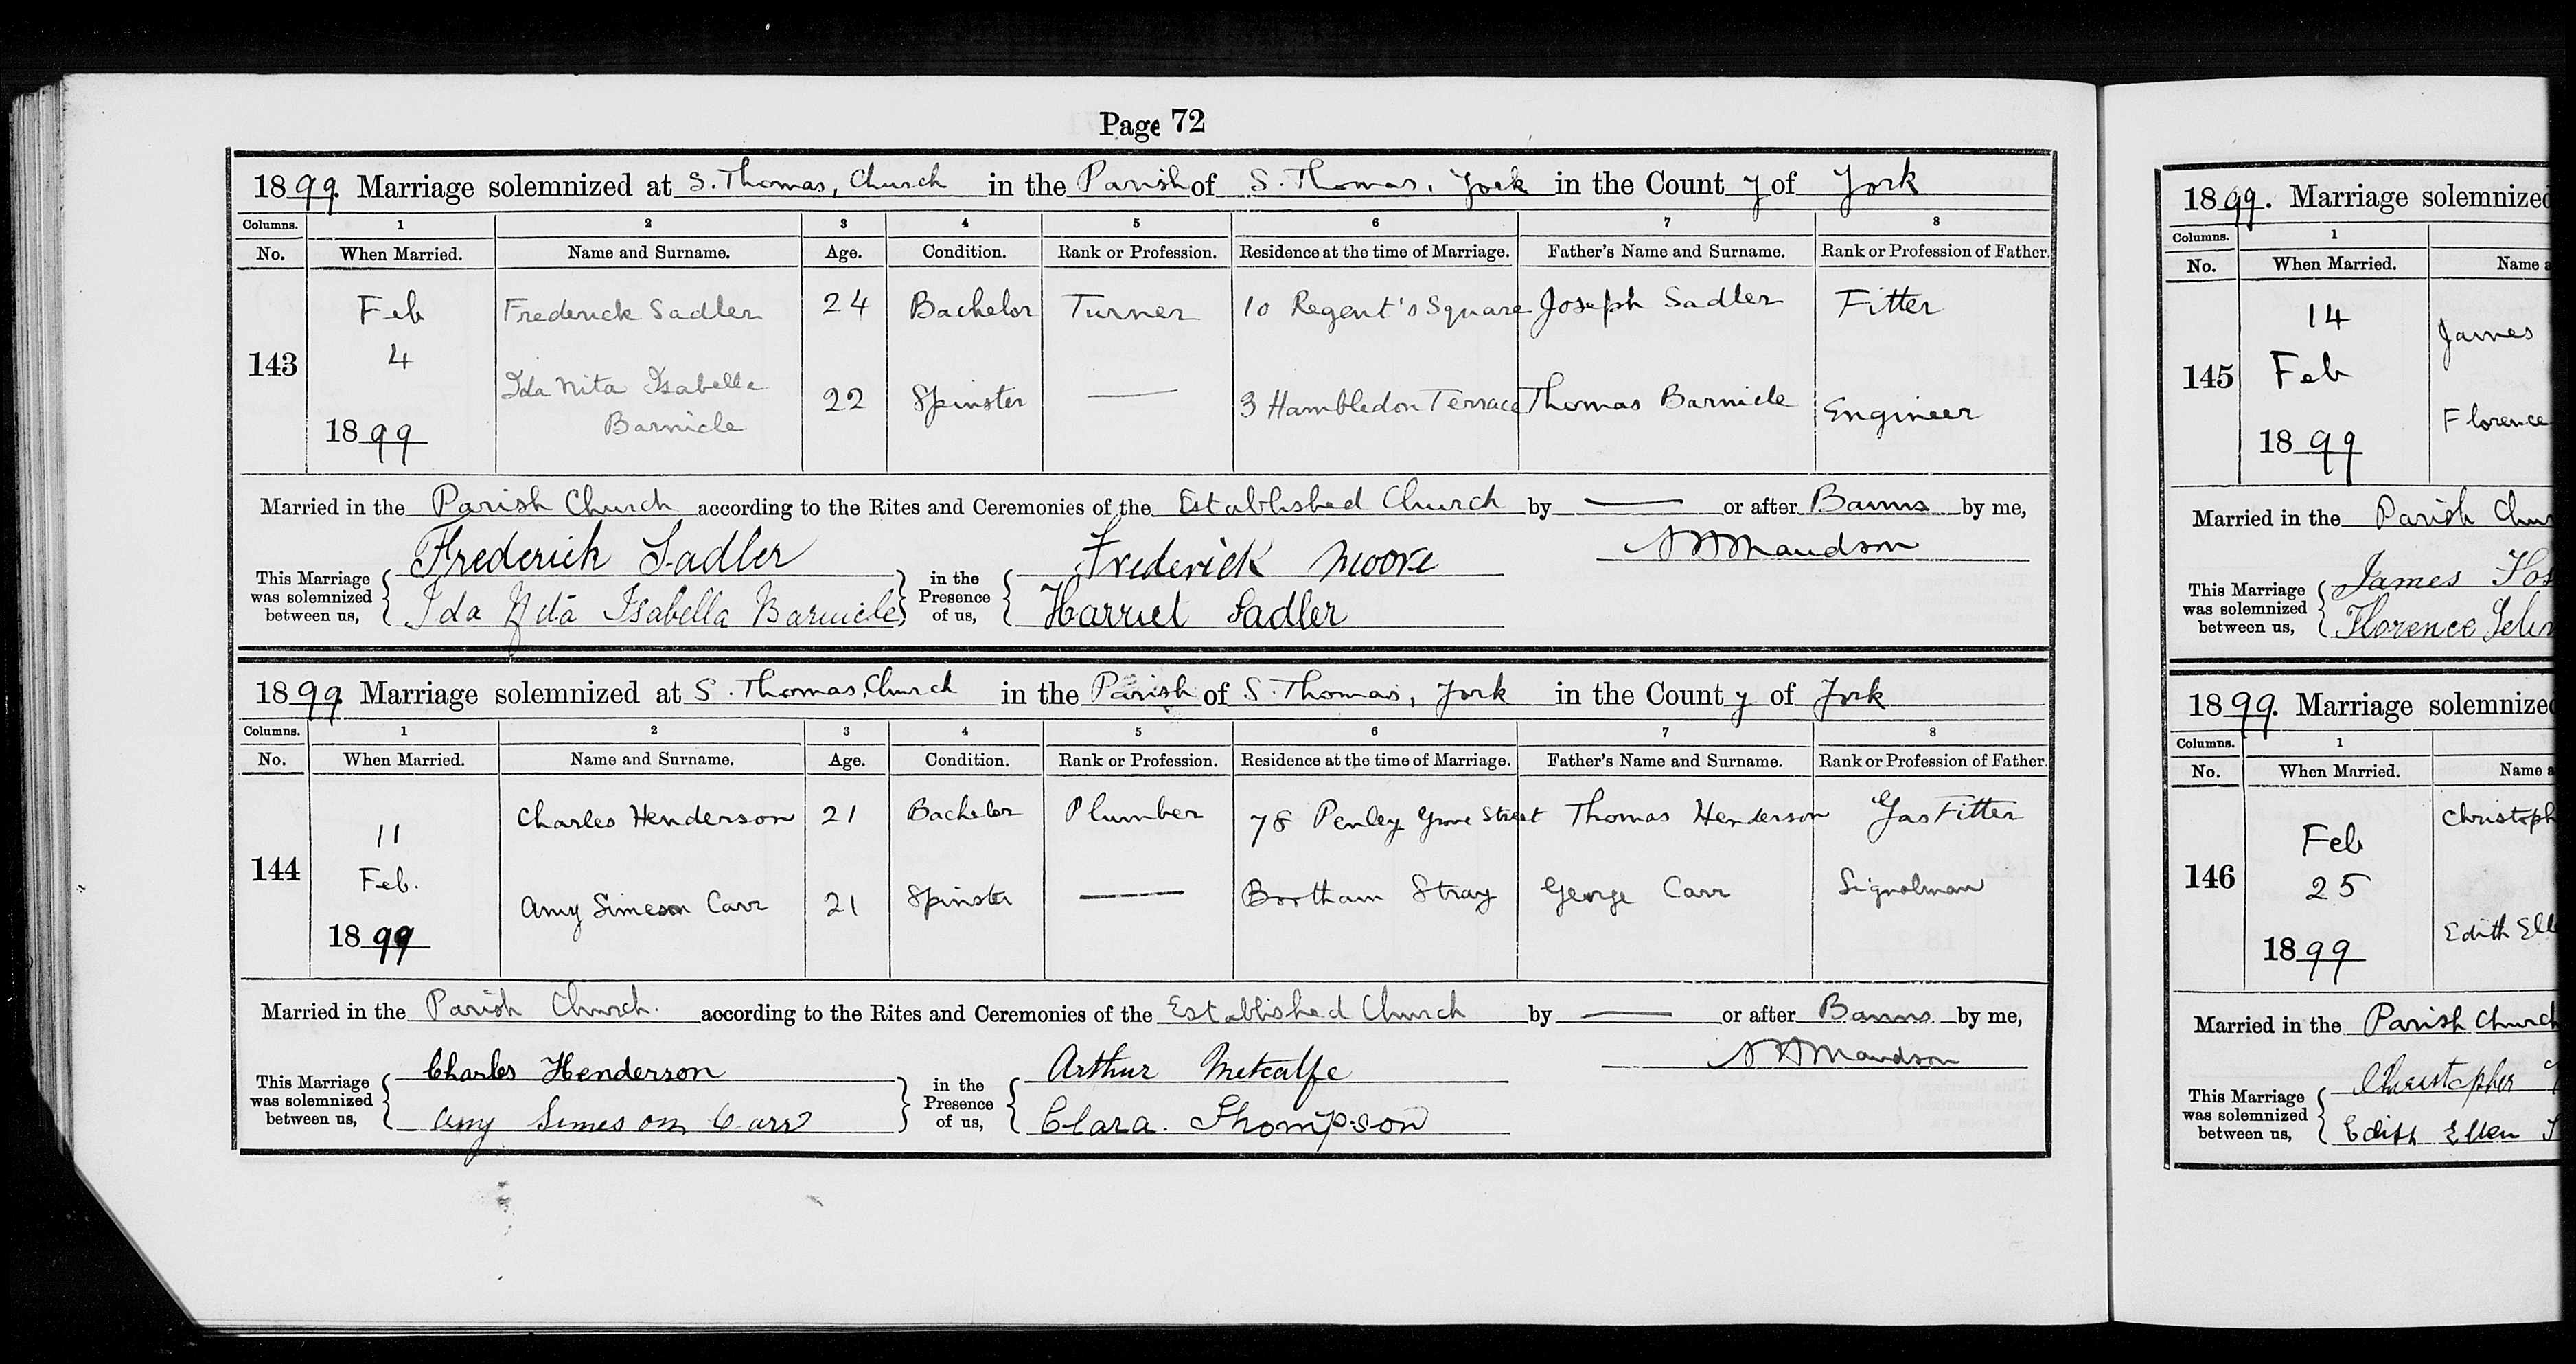 Page 72
1899. Marriage solemnized at S. Thomas, Church in the Parish of S. Thomas, York in the County of York
Columns. 1 2 3 4 5 6 7 8
No. When Married. Name and Surname. Age. Condition. Rank or Profession. Residence at the time of Marriage. Father's Name and Surname. Rank or Profession of Father.
Feb Frederick Sadler 24 Bachelor Turner 10 Regent's Square Joseph Sadler Fitter
143 4
Ida Nita Isabella 22 Spinster — 3 Hambledon Terrace Thomas Barnicle Engineer
Barnicle
1899
Married in the Parish Church according to the Rites and Ceremonies of the Established Church by — or after Banns by me,
Frederick Sadler Frederick Moore
This Marriage was solemnized between us, in the Presence of us,
Ida Nita Isabella Barnicle Harriet Sadler
1899 Marriage solemnized at S. Thomas, Church in the Parish of S. Thomas, York in the County of York
Columns. 1 2 3 4 5 6 7 8
No. When Married. Name and Surname. Age. Condition. Rank or Profession. Residence at the time of Marriage. Father's Name and Surname. Rank or Profession of Father.
11 Charles Henderson 21 Bachelor Plumber 78 Penley Grove Street Thomas Henderson Gas Fitter
144 Feb.
Amy Simeson Carr 21 Spinster — Bootham Stray George Carr Signalman
1899
Married in the Parish Church. according to the Rites and Ceremonies of the Established Church by — or after Banns by me,
Charles Henderson Arthur Metcalfe
This Marriage was solemnized between us, in the Presence of us,
Amy Simeson Carr Clara. Thompson
1899. Marriage solemnized
Columns. 1
No. When Married. Name
14 James
145 Feb
Florence
1899
Married in the Parish
James
This Marriage was solemnized between us,
Florence
1899. Marriage solemnized
Columns. 1
No. When Married. Name
Christoph
Feb
146 25
Edith
1899
Married in the Parish Church
Christopher
This Marriage was solemnized between us,
Edith Ellen